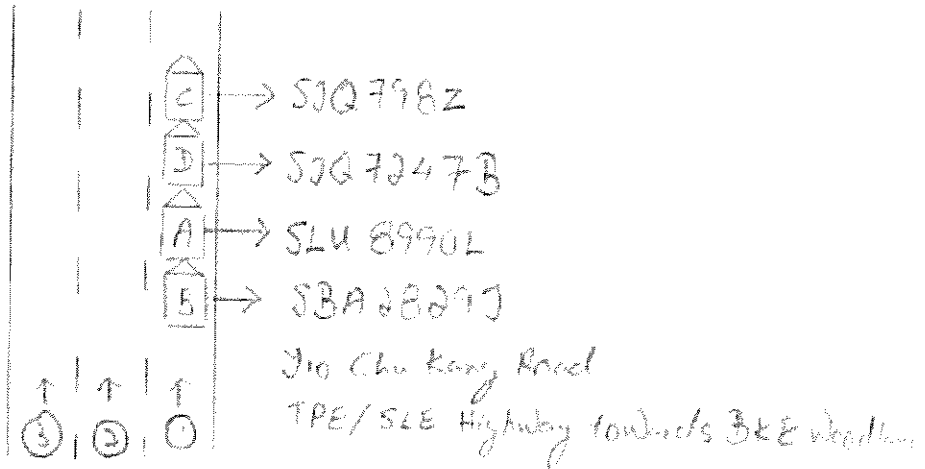 C → SJQ798Z
D → SJQ7247B
A → SLU 8990L
B → SBA2829J
Yio Chu Kang Road
TPE/SLE Highway towards BKE
3 2 1